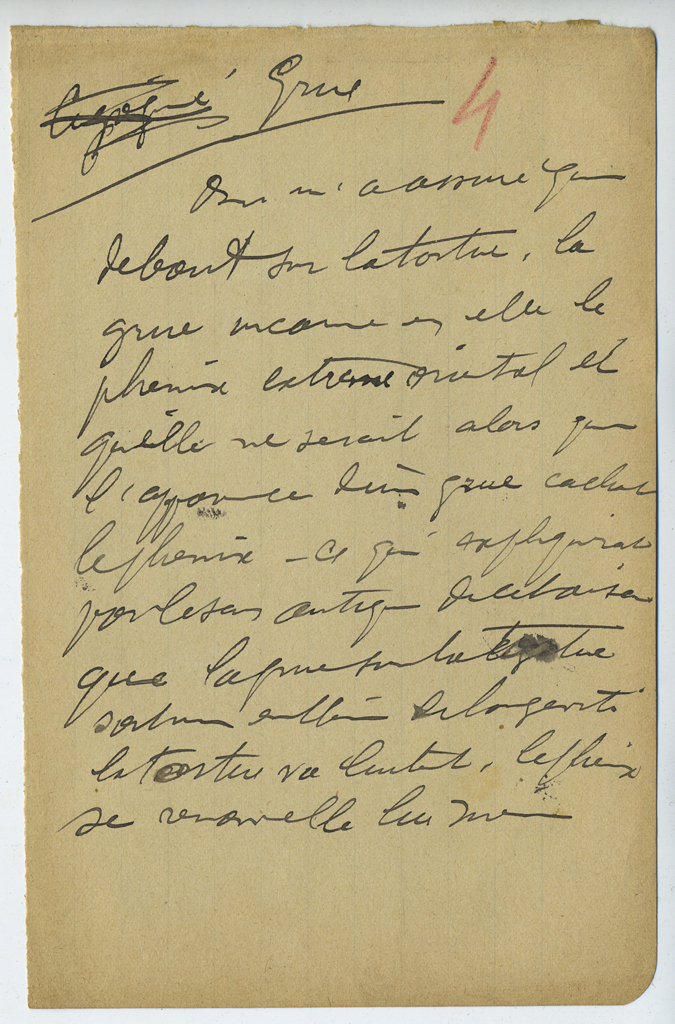 Grue 4
On m'a assuré que
debout sur la tortue, la
grue incarne en elle le
phenix extreme oriental et
qu'elle ne serait alors que
l'apparence d'une grue cachant
le phenix - ce qui expliquerait
par le sens antique de cet oiseau
que la grue sur la tortue
soit un emblême de longevité
la tortue va lentet, le phenix
se renouvelle lui meme